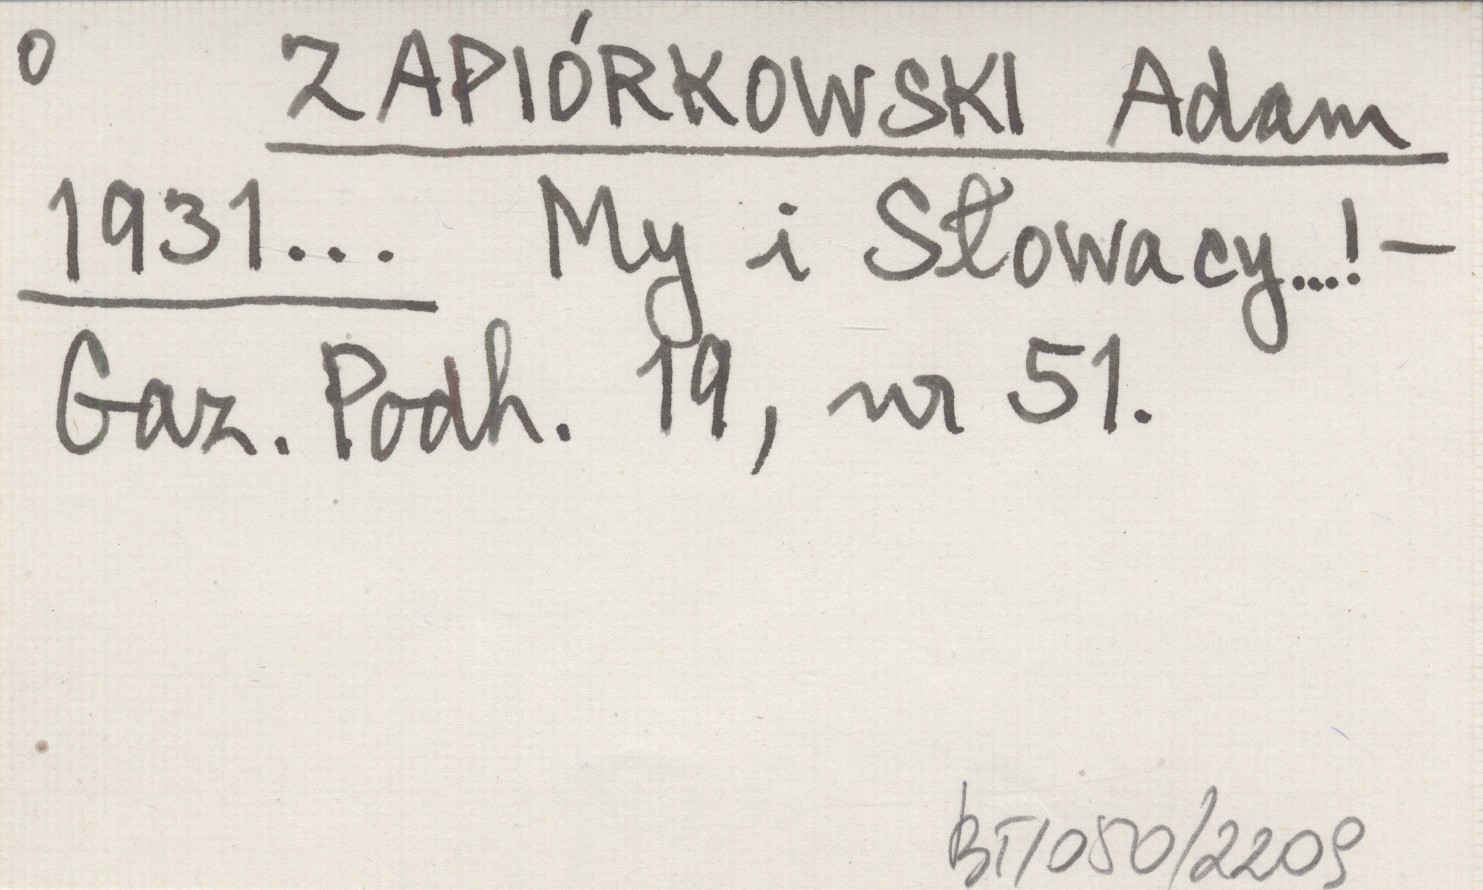 o ZAPIÓRKOWSKI Adam
1931... My i Słowacy...! —
Gaz. Podh. 19, nr 51.
BT/050/2209